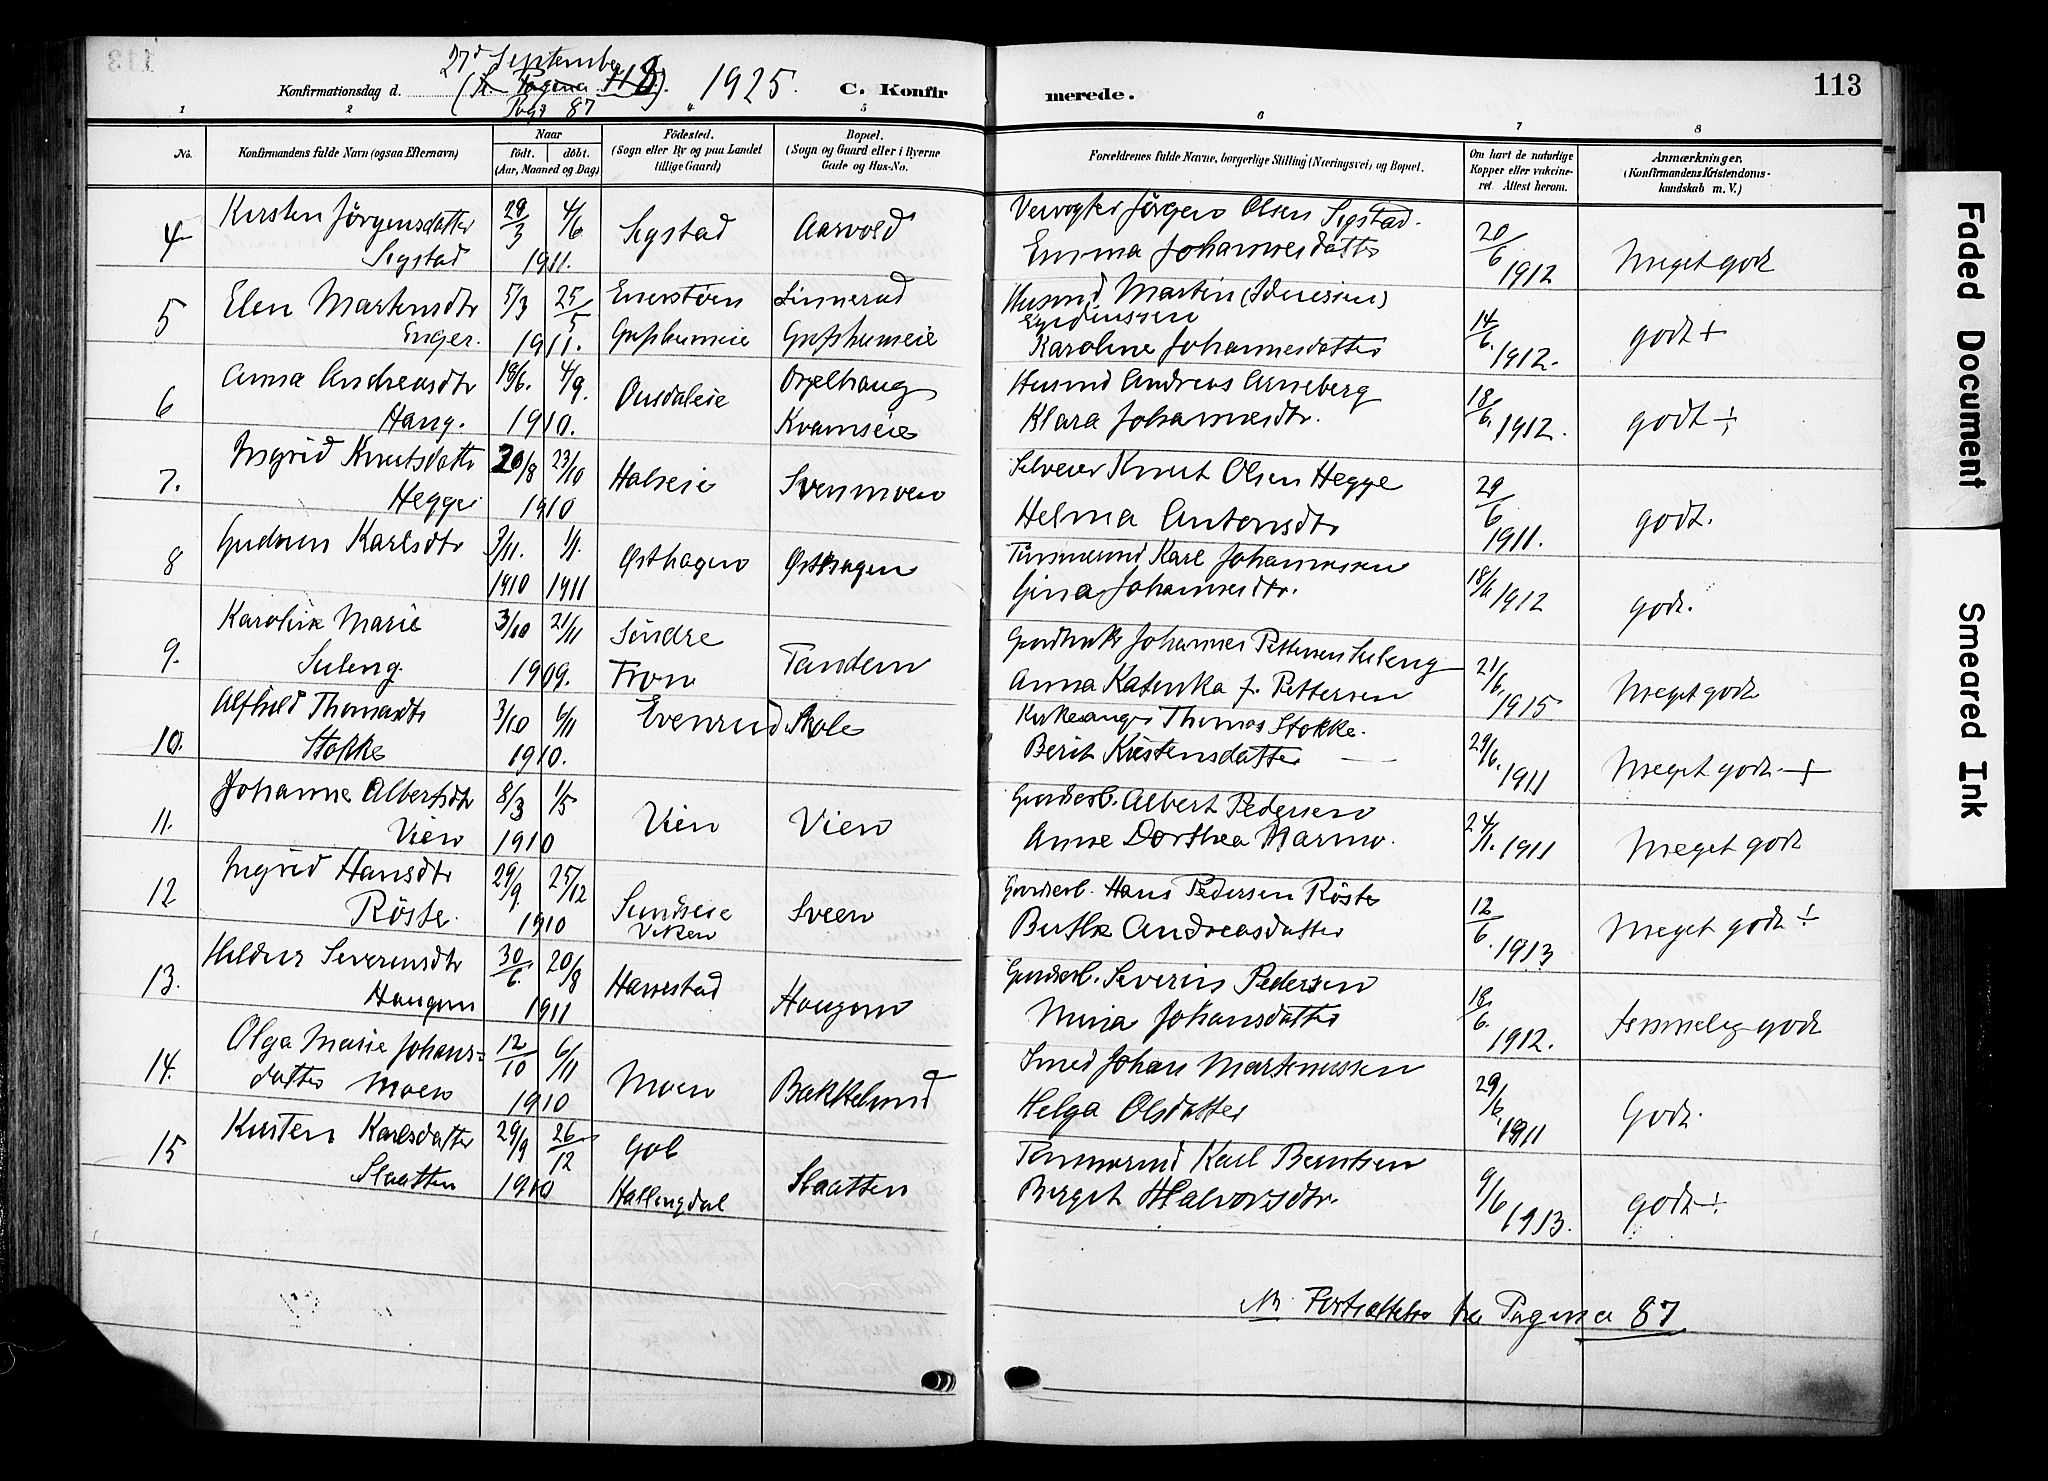 113
27d September
Konfirmationsdag d. 1925. C. Konfirmerede.
Pag: 87
1 2 4 5 6 7 8
No. Konfirmandens fulde Navn (ogsaa Efternavn)
Naar
født. døbt.
(Aar, Maaned og Dag)
Fødested.
(Sogn eller By og paa Landet tillige Gaard)
Bopæl.
(Sogn og Gaard eller i Byerne Gade og Hus-No.
Forældrenes fulde Navne, borgerlige Stilling (Næringsvei) og Bopæl.
Om havt de naturlige Kopper eller vakcineret. Attest herom.
Anmærkninger,
(Konfirmandens Kristendomskundskab m. V.)
4 Kirsten Jörgensdatter Sigstad 29/3 4/6 1911. Sigstad Aasvold
Jörgen Olsen Sigstad. Emma Johannesdatter 20/6 1912 Meget godt
5 Elen Martensdtr Enger. 5/3 25/5 1911. Linnerud
Husmd. Martin Karoline Johannesdatter 14/6. 1912. godt +
6 Anna Andreasdtr Haug. 19/6. 4/9. 1910. Ousdaleie Kvamseie
Husmd Andreas Arneberg Klara Johannesdtr. 18/6. 1912. godt ÷
7. Ingrid Knutsdattr Hegge 20/8 23/10 1910 Halseie Svenmoen
Selveier Knut Olsen Hegge Helma Antonsdtr 29/6 1911. godt.
8 Gudrun Karlsdtr 3/11. 1/1. 1910 1911 Østhagen Østhagen
Tömmermd Karl Johannessen Gina Johannesdtr. 18/6 1912 godt.
9. Karoline Marie Suleng. 3/10 21/11 1909. Söndre Fron Tandem
Gaardbruker Johannes Pettersen Suleng Anna Katinka f. Pettersen 21/6. 1915 Meget godt
10. Alfhild Thomasdtr Stokke 3/10 6/11 1910. Evenrud Skole
Kirkesanger Thomas Stokke. Berit Kristensdatter 29/6. 1911 Meget godt. +
11. Johanne Albertsdtr Vien 8/3 1/5 1910 Vien Vien
Gaarderb. Albert Pedersen Anne Dorthea Marmo. 24/1. 1911 Meget godt
12 Ingrid Hansdtr Röste. 29/9. 25/12 1910 Sundseie Viken Sveen
Gaarderb. Hans Pedersen Röste Buthe Andreasdatter 12/6. 1913 Meget godt ÷
13. Hildur Severinsdtr Haugen 30/6. 20/8 1911 Harrestad Haugen
Gaarderb. Severin Pedersen Mina Johansdatter 18/6. 1912. temmelig godt
14. Olga Marie Johans=datter Moen 12/10 6/11 1910 Moen Bakkelund
Smed Johan Martinussen Helga Olsdatter 29/6. 1911 Godt.
15 Kirsten Karlsdatter Slaatten 29/9 26/12 1910 Gol Hallingdal Slaatten
Tömmermd Karl Berntsen Birgit Halvorsdtr. 9/6 1913. godt ÷.
Nb. Fortsættelse fra Pagina 87
Faded Document
Smeared Ink